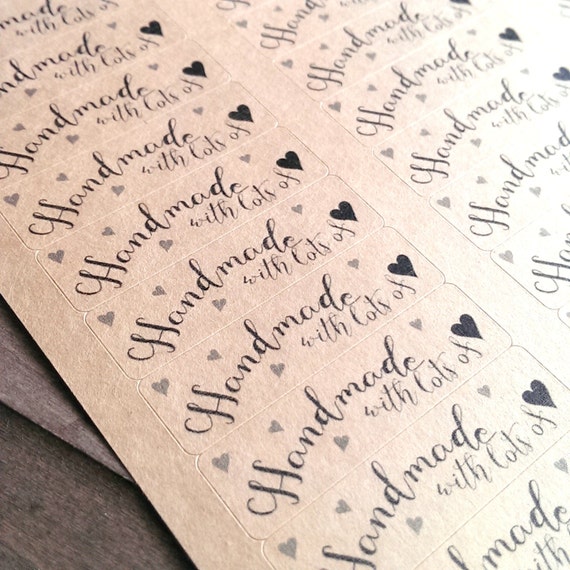 Handmade
with lots of
Handmade
with lots of
Handmade
with lots of
Handmade
with lots of
Handmade
with lots of
Handmade
with lots of
Handmade
with lots of
Handmade
with lots of
Handmade
with lots of
Handmade
with lots of
Handmade
with lots of
Handmade
with lots of
Handmade
with lots of